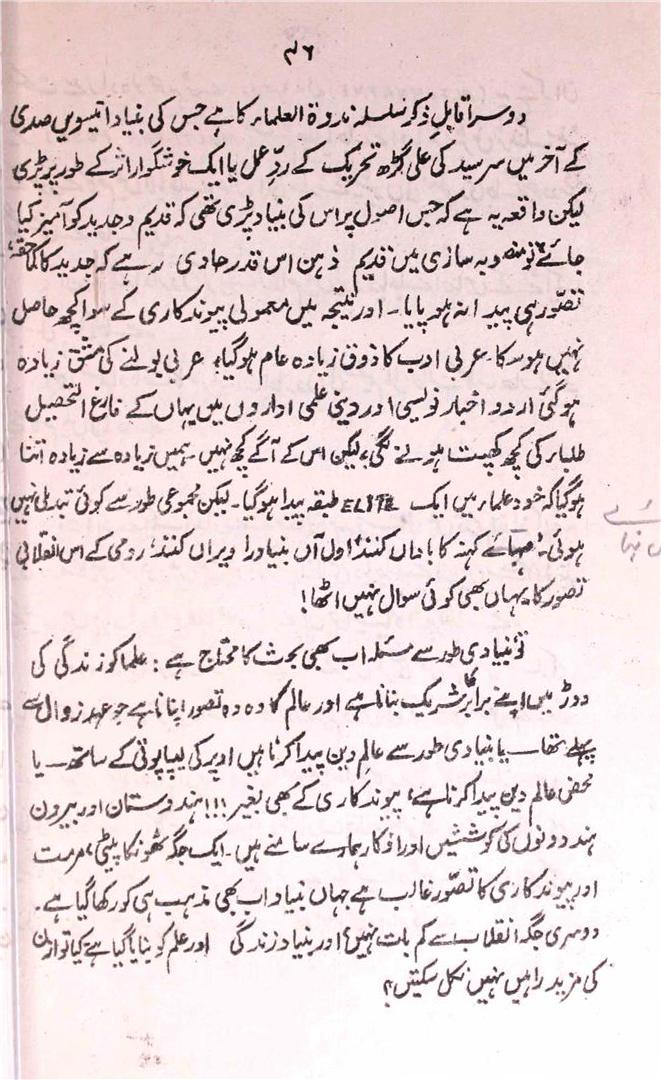 ۴۶
دوسرا قابلِ ذکر سلسلہ ندوۃ العلماء کا ہے جس کی بنیاد انیسویں صدی
کے آخر میں سرسید کی علی گڑھ تحریک کے ردِّ عمل یا ایک خوشگوار اثر کے طور پر پڑی
لیکن واقعہ یہ ہے کہ جس اصول پر اس کی بنیاد پڑی تھی کہ قدیم و جدید کو آمیز کیا
جائے تو منصوبہ سازی میں قدیم ذہن اس قدر حاوی رہے کہ جدید کا کماحقہٗ
تصوّر ہی پیدا نہ ہو پایا۔ اور نتیجہ میں معمولی پیوندکاری کے سوا کچھ حاصل
نہیں ہوسکا۔ عربی ادب کا ذوق زیادہ عام ہوگیا، عربی بولنے کی مشق زیادہ
ہوگئی اردو اخبار نویسی اور دینی علمی اداروں میں یہاں کے فارغ التحصیل
طلباء کی کچھ کھپت ہونے لگی، لیکن اس کے آگے کچھ نہیں۔ ہمیں زیادہ سے زیادہ اتنا
ہوگیا کہ خود علماء میں ایک ELITE طبقہ پیدا ہوگیا۔ لیکن مجموعی طور سے کوئی تبدیلی نہیں
ہوئی۔ ’صہبائے کہنہ کا باداں کنند‘ اول آں بنیاد را ویراں کنند؛ رومی کے اس انقلابی
تصور کا، یہاں بھی کوئی سوال نہیں اٹھا!
تو بنیادی طور سے مسئلہ اب بھی بحث کا محتاج ہے: علما کو زندگی کی
دوڑ میں اپنے برابر کا شریک بنانا ہے اور عالم کا وہ تصور اپنانا ہے جو عہد زوال سے
پہلے تھا — یا بنیادی طور سے عالمِ دین پیدا کرنا ہیں اوپر کی لیپا پوتی کے ساتھ — یا
محض عالم دین پیدا کرنا ہے، پیوندکاری کے بھی بغیر!!! ہندوستان اور بیرون
ہند دونوں کی کوششیں اور افکار ہمارے سامنے ہیں۔ ایک جگہ ٹھونکا پیٹی، مرمت
اور پیوندکاری کا تصوّر غالب ہے جہاں بنیاد اب بھی مذہب ہی کو رکھا گیا ہے۔
دوسری جگہ انقلاب سے کم بات نہیں؛ اور بنیاد زندگی اور علم کو بنایا گیا ہے کیا توازن
کی مزید راہیں نہیں نکل سکتیں؟